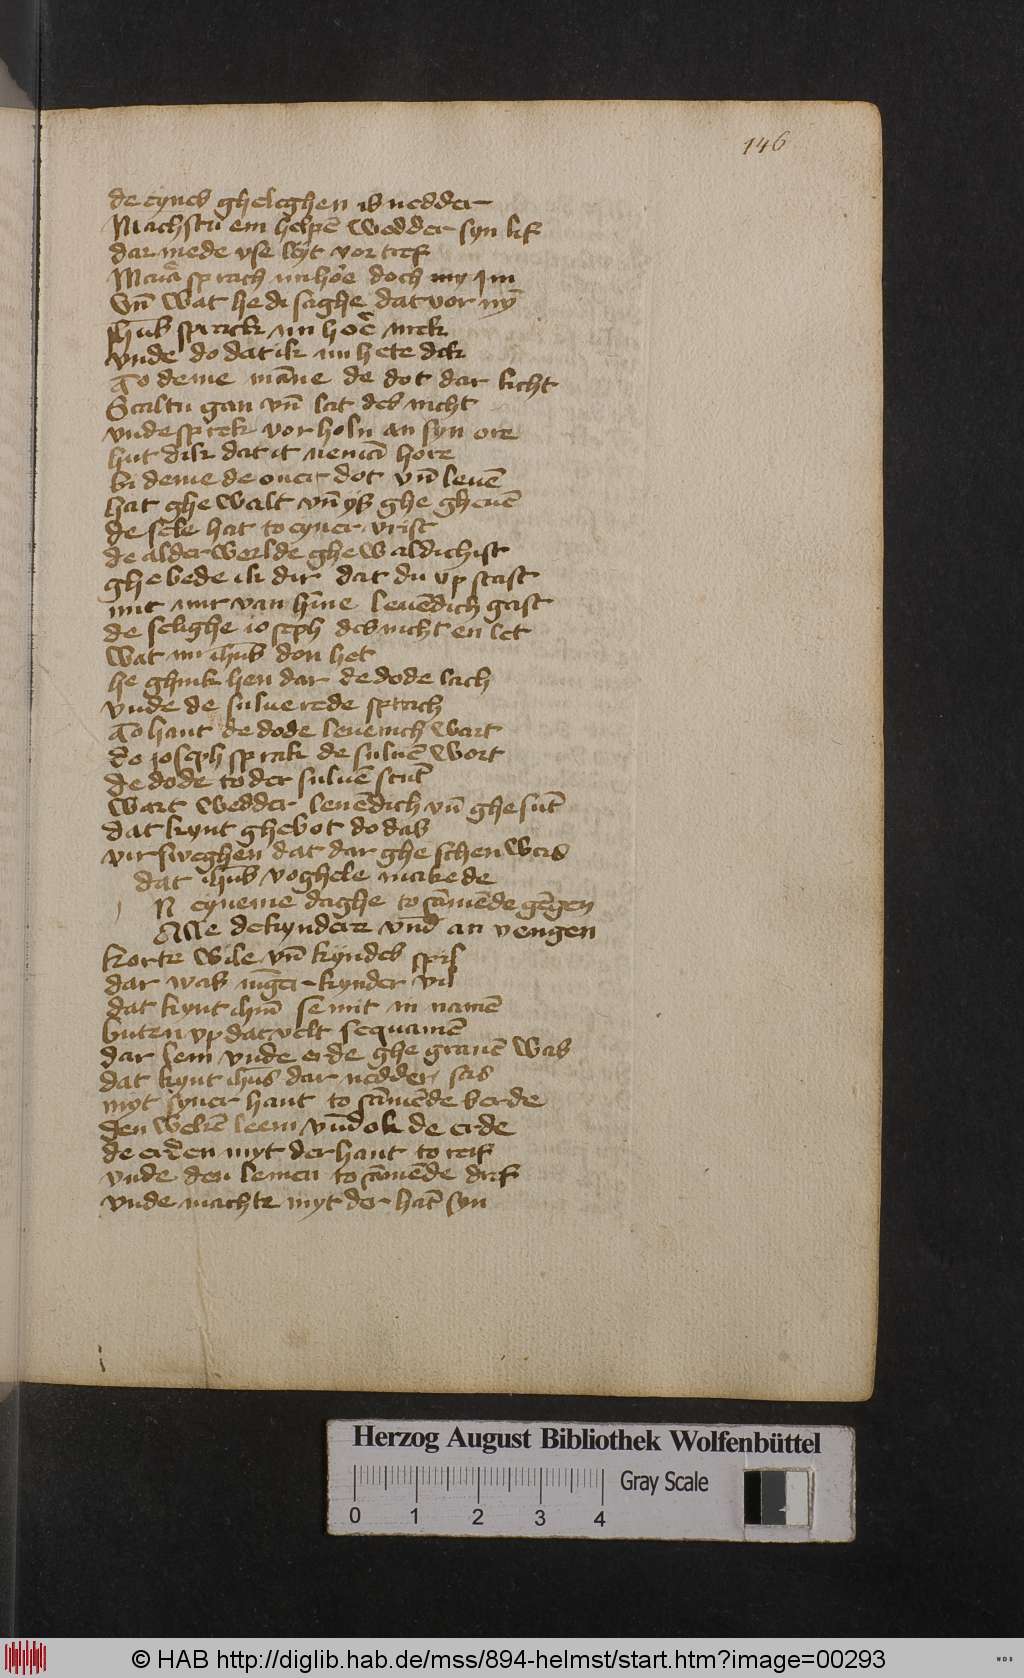 146
de eynes gheleghen is nedder
Machstu em helpē wedder syn lif
dar mede vse lyt vor tref
sprach doch my
Vn̄ wat he di saghe dat vor ny̅
ih̅us sprack nu hoē mek
vnde do dat ik nu hete dek
To deme ma̅ne de dot dar licht
Scaltu gan vn̄ lat des nicht
vnde sprek vor holn an syn ore
hut dik dat it nema̅ hore
bi deme de ouer dot vn̄ leue̅
hat ghe walt vn̄ ys ghe gheue̅
de sele hat to eyner vrist
de alder werlde ghe waldichist
ghe bede ik dir dat du vp stast
mit mir van hi̅ne leue̅dich gast
de selighe ioseph des nicht en let
wat mi ih̅us don het
he ghink hen dar de dode lach
vnde de sulue rede sprach
To hant de dode leuenich wart
do ioseph sprak de sulue̅ wort
de dode to der sulue̅ stut̅
wart wedder leue̅dich vn̄ ghesut̅
dat kynt ghebot do das
virsweghen dat dar ghe schen was
dat ih̅us voghele makede
N eyneme daghe to sa̅me̅de ge̅gen
Alle de kyndere vn̅d an vengen
korte wile vn̄ kyndes spil
dar was ma̅ger kynder vil
dat kynt ih̅m se mit in name̅
buten vp dat velt se quame̅
dar lem vnde erde ghe graue̅ was
dat kynt ih̅us dar nedder sas
myt syner hant to sa̅me̅de berde
den weke̅ leem vn̅d ok de erde
de erden myt der hant to reif
vnde den lemen to sa̅me̅de dref
vnde machte myt der hat̅ syn
Herzog August Bibliothek Wolfenbüttel
Gray Scale
0 1 2 3 4
© HAB http://diglib.hab.de/mss/894-helmst/start.htm?image=00293